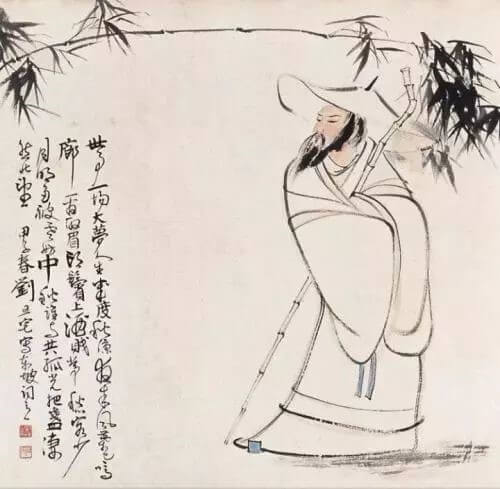 世事一場大夢人生幾度秋涼夜来風葉已鳴
廊看取眉頭鬢上酒賤常愁客少
月明多被雲妨中秋誰與共孤光把盞凄
然北望 甲子春劉旦宅寫東坡詞意